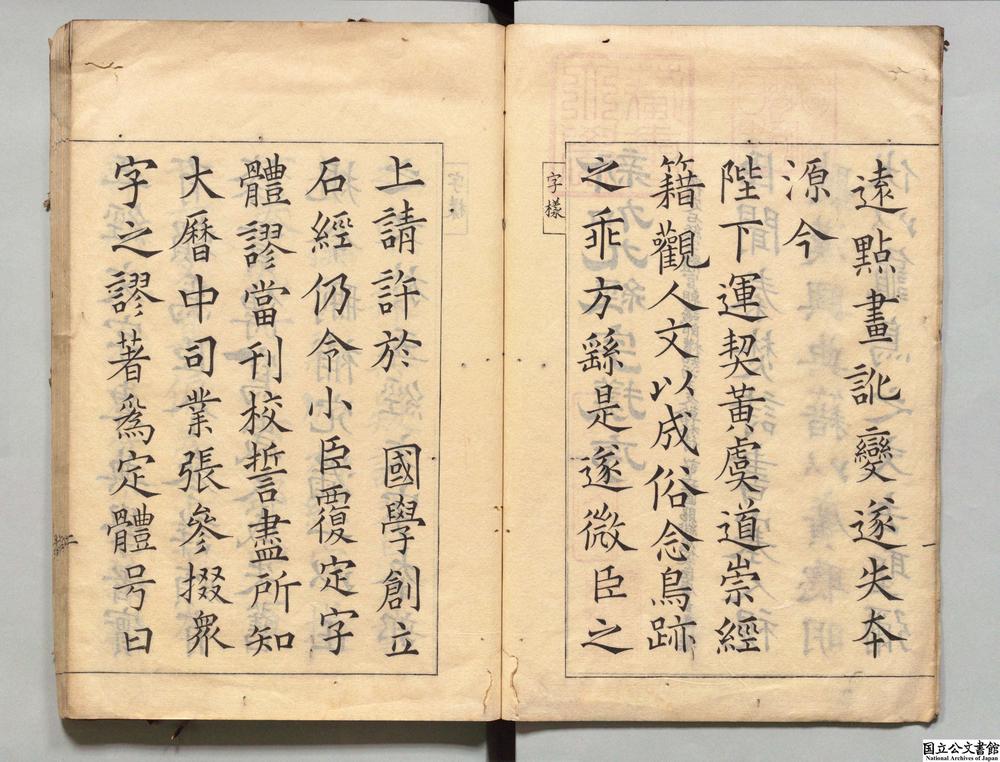 遠點畫訛變遂失本
源今
陛下運契黃虞道崇經
籍觀人文以成俗念鳥跡
之乖方繇是遂微臣之
字樣
上請許於 國學創立
石經仍令小臣覆定字
體謬當刊校誓盡所知
大曆中司業張參掇衆
字之謬著爲定體号曰
国立公文書館
National Archives of Japan